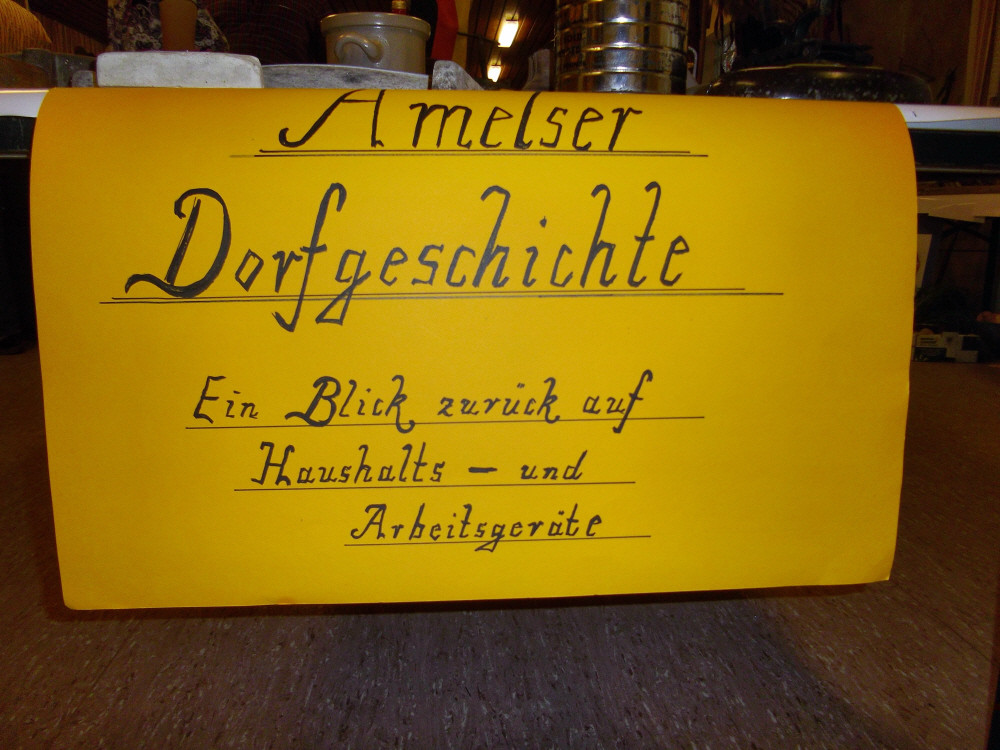 Amelser
Dorfgeschichte
Ein Blick zurück auf
Haushalts – und
Arbeitsgeräte